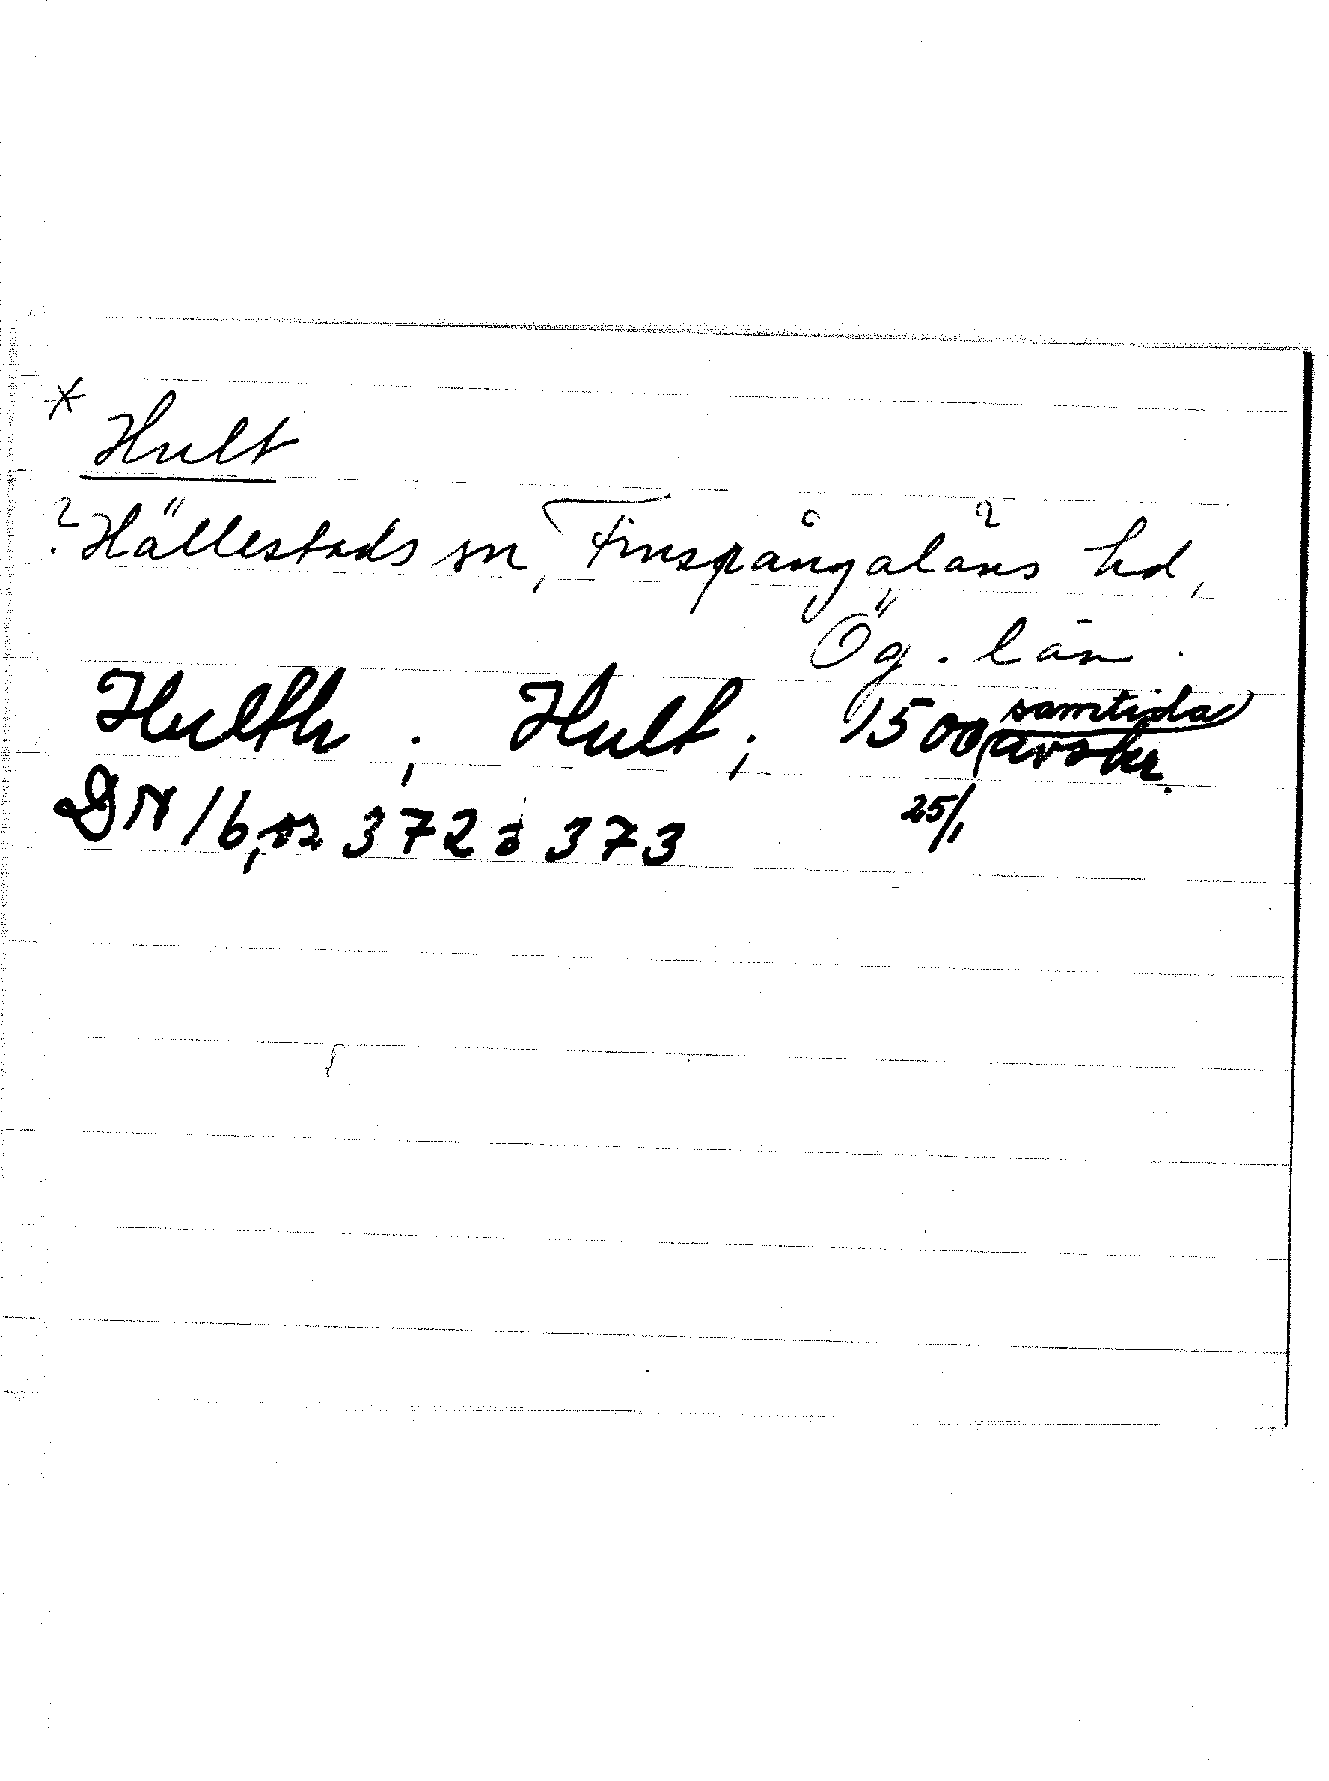 *
Hult
? Hällestads sn, Finspångaläns hd,
Ög. län.
Hulth, Hult; 1500 (samtida avskr.)
DN 16, s 372 o 373 25/1